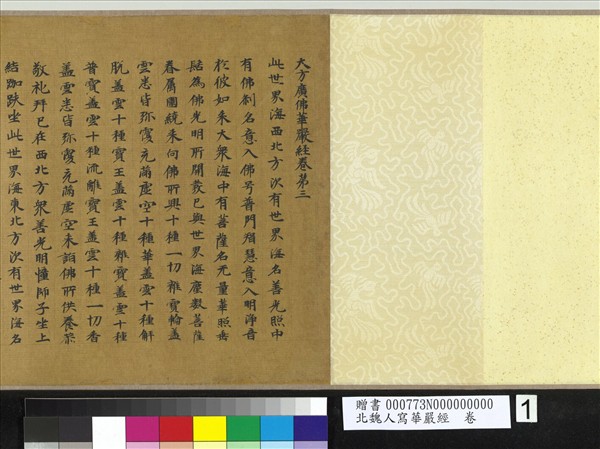 大方廣佛華嚴經卷第三
此世界海西北方次有世界海名善光照中
有佛剎名意入佛号普門
意入明淨音
於彼如來大衆海中有菩薩名无量華照
為佛光明所開發已與世界海塵數菩薩
眷屬圍繞來向佛所興十種一切雜寶輪蓋
雲悉皆弥覆充滿虛空十種華蓋雲十種解
脫蓋雲十種寶王蓋雲十種雜寶蓋雲十種
普寶蓋雲十種流離寶王蓋雲十種一切香
蓋雲悉皆弥覆充滿虛空來詣佛所供養恭
敬礼拜已在西北方衆善光明憧師子坐上
結跏趺坐此世界海東北方次有世界海名
贈書 000773N000000000
北魏人寫華嚴經 卷
1